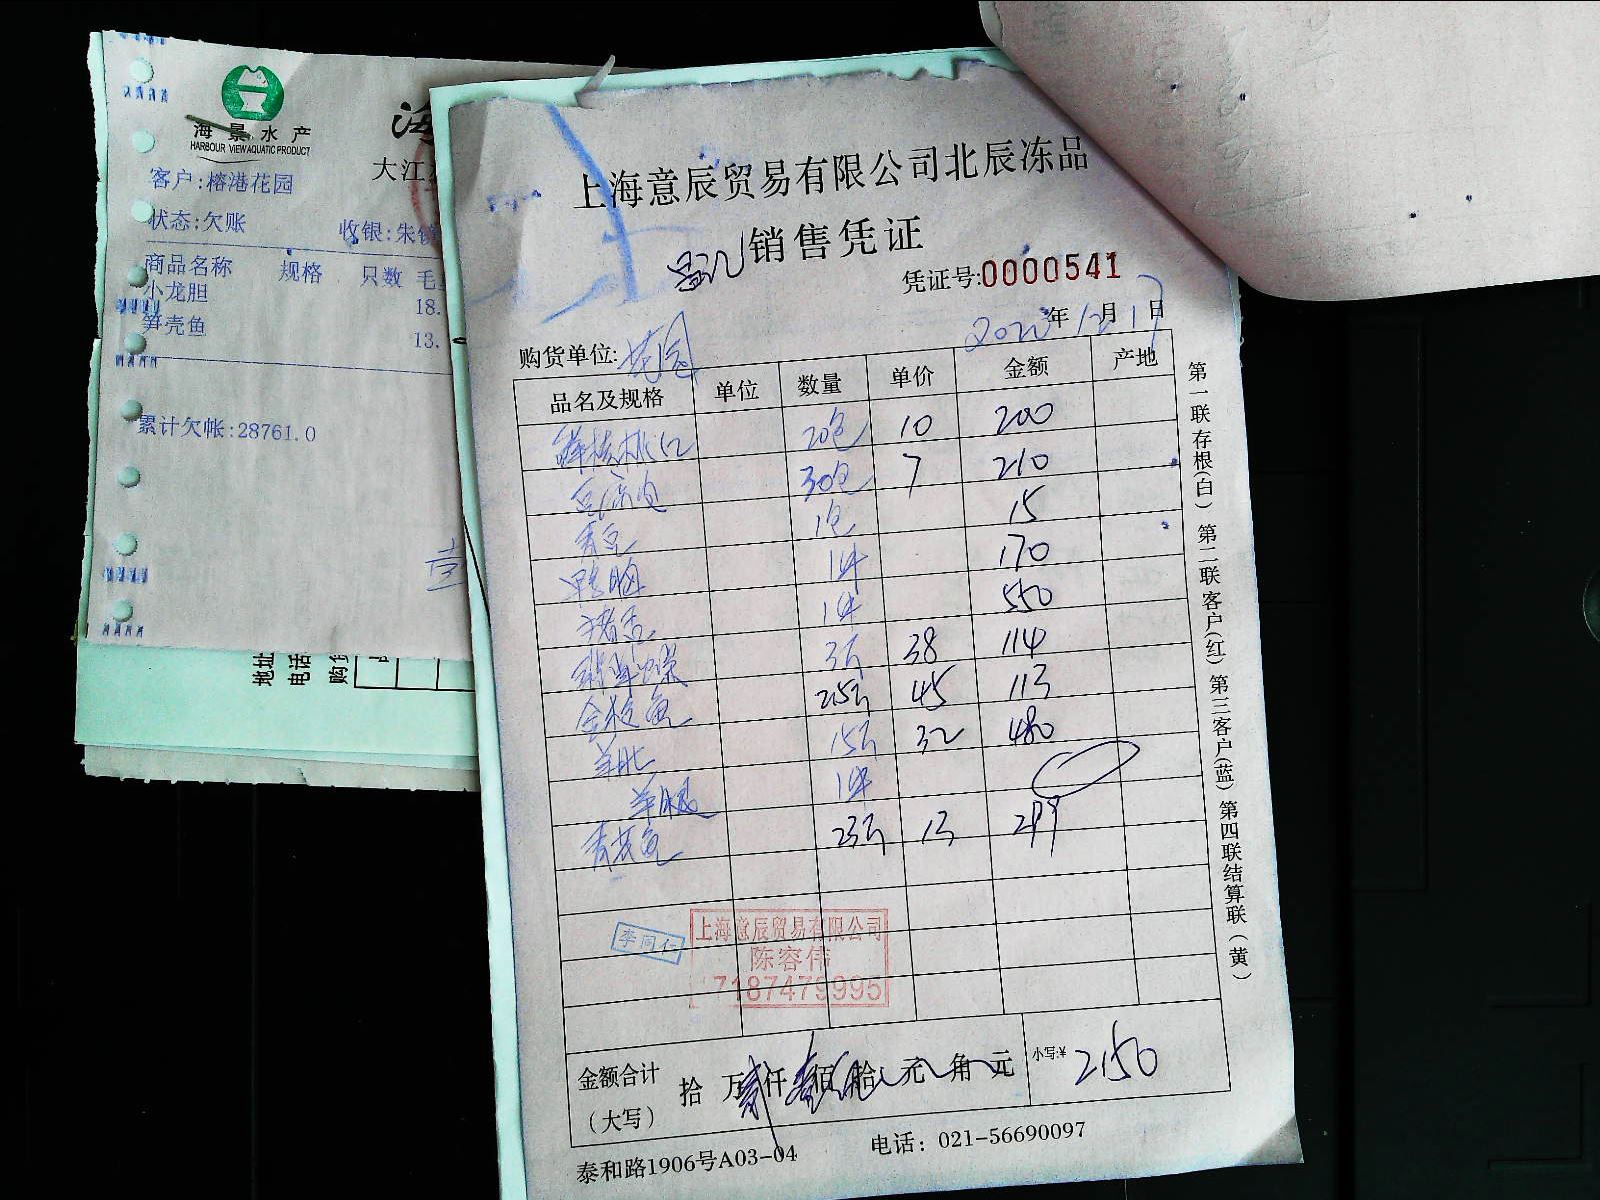 海景水产
HARBOUR VIEW AQUATIC PRODUCT
大江
客户:榕港花园
状态:欠账 收银:朱
商品名称 规格 只数 毛
小龙胆 18.
笋壳鱼 13.
累计欠帐:28761.0
地址
电话
购
上海意辰贸易有限公司北辰冻品
销售凭证
凭证号:0000541
2022年12月17日
购货单位:花园
品名及规格 单位 数量 单价 金额 产地
鲜核桃仁 20包 10 200
30包 7 210
青豆 1包 15
1件 170
猪舌 1件 550
3斤 38 114
金枪鱼 2.5斤 45 113
羊肚 15斤 32 480
羊腿 1件
青花鱼 23斤 13 299
李同仁
上海意辰贸易有限公司
陈容伟
7187479995
金额合计(大写) 拾 万 贰仟 壹佰 伍拾 元 角 元 小写:¥ 2150
泰和路1906号A03-04 电话：021-56690097
第一联存根(白) 第二联客户(红) 第三客户(蓝) 第四联结算联(黄)